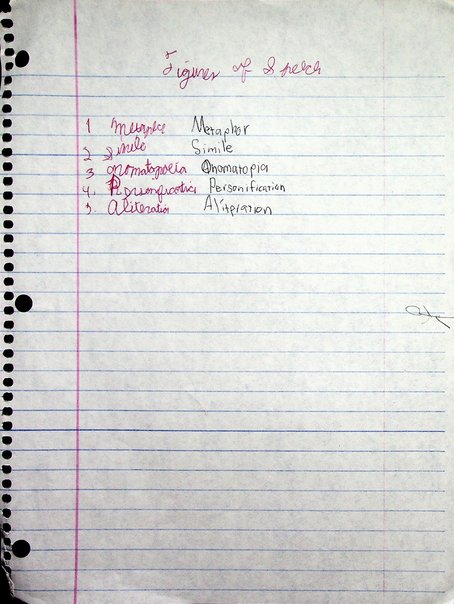 Figures of Speech
1 Metaphor
2 Simile Simile
3 onomatopoeia Onomatopia
4. Personification Personification
5. Aliteration Aliteration